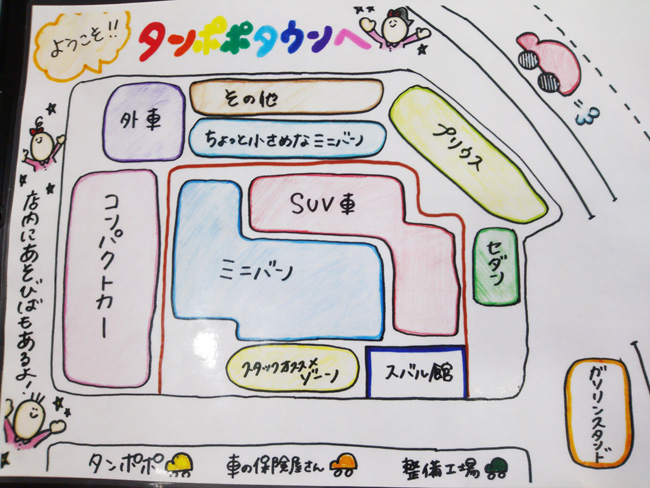 ようこそ!!
タンポポタウンへ
外車
その他
ちょっと小さめなミニバン
プリウス
コンパクトカー
SUV車
ミニバン
セダン
スタッフオススメ
ゾーン
スバル館
店内にあそびばもあるよ!
ガソリンスタンド
タンポポ
車の保険屋さん
整備工場